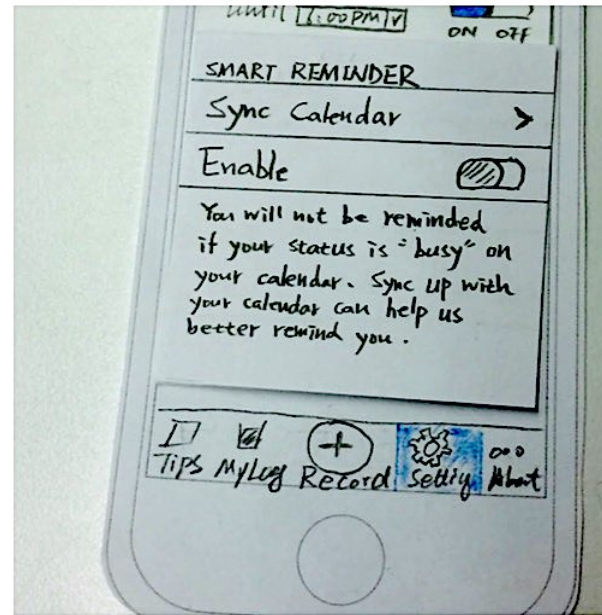 until 7:00PM V
ON OFF
SMART REMINDER
Sync Calendar >
Enable
You will not be reminded
if your status is "busy" on
your calendar. Sync up with
your calendar can help us
better remind you.
Tips MyLog Record Settig About